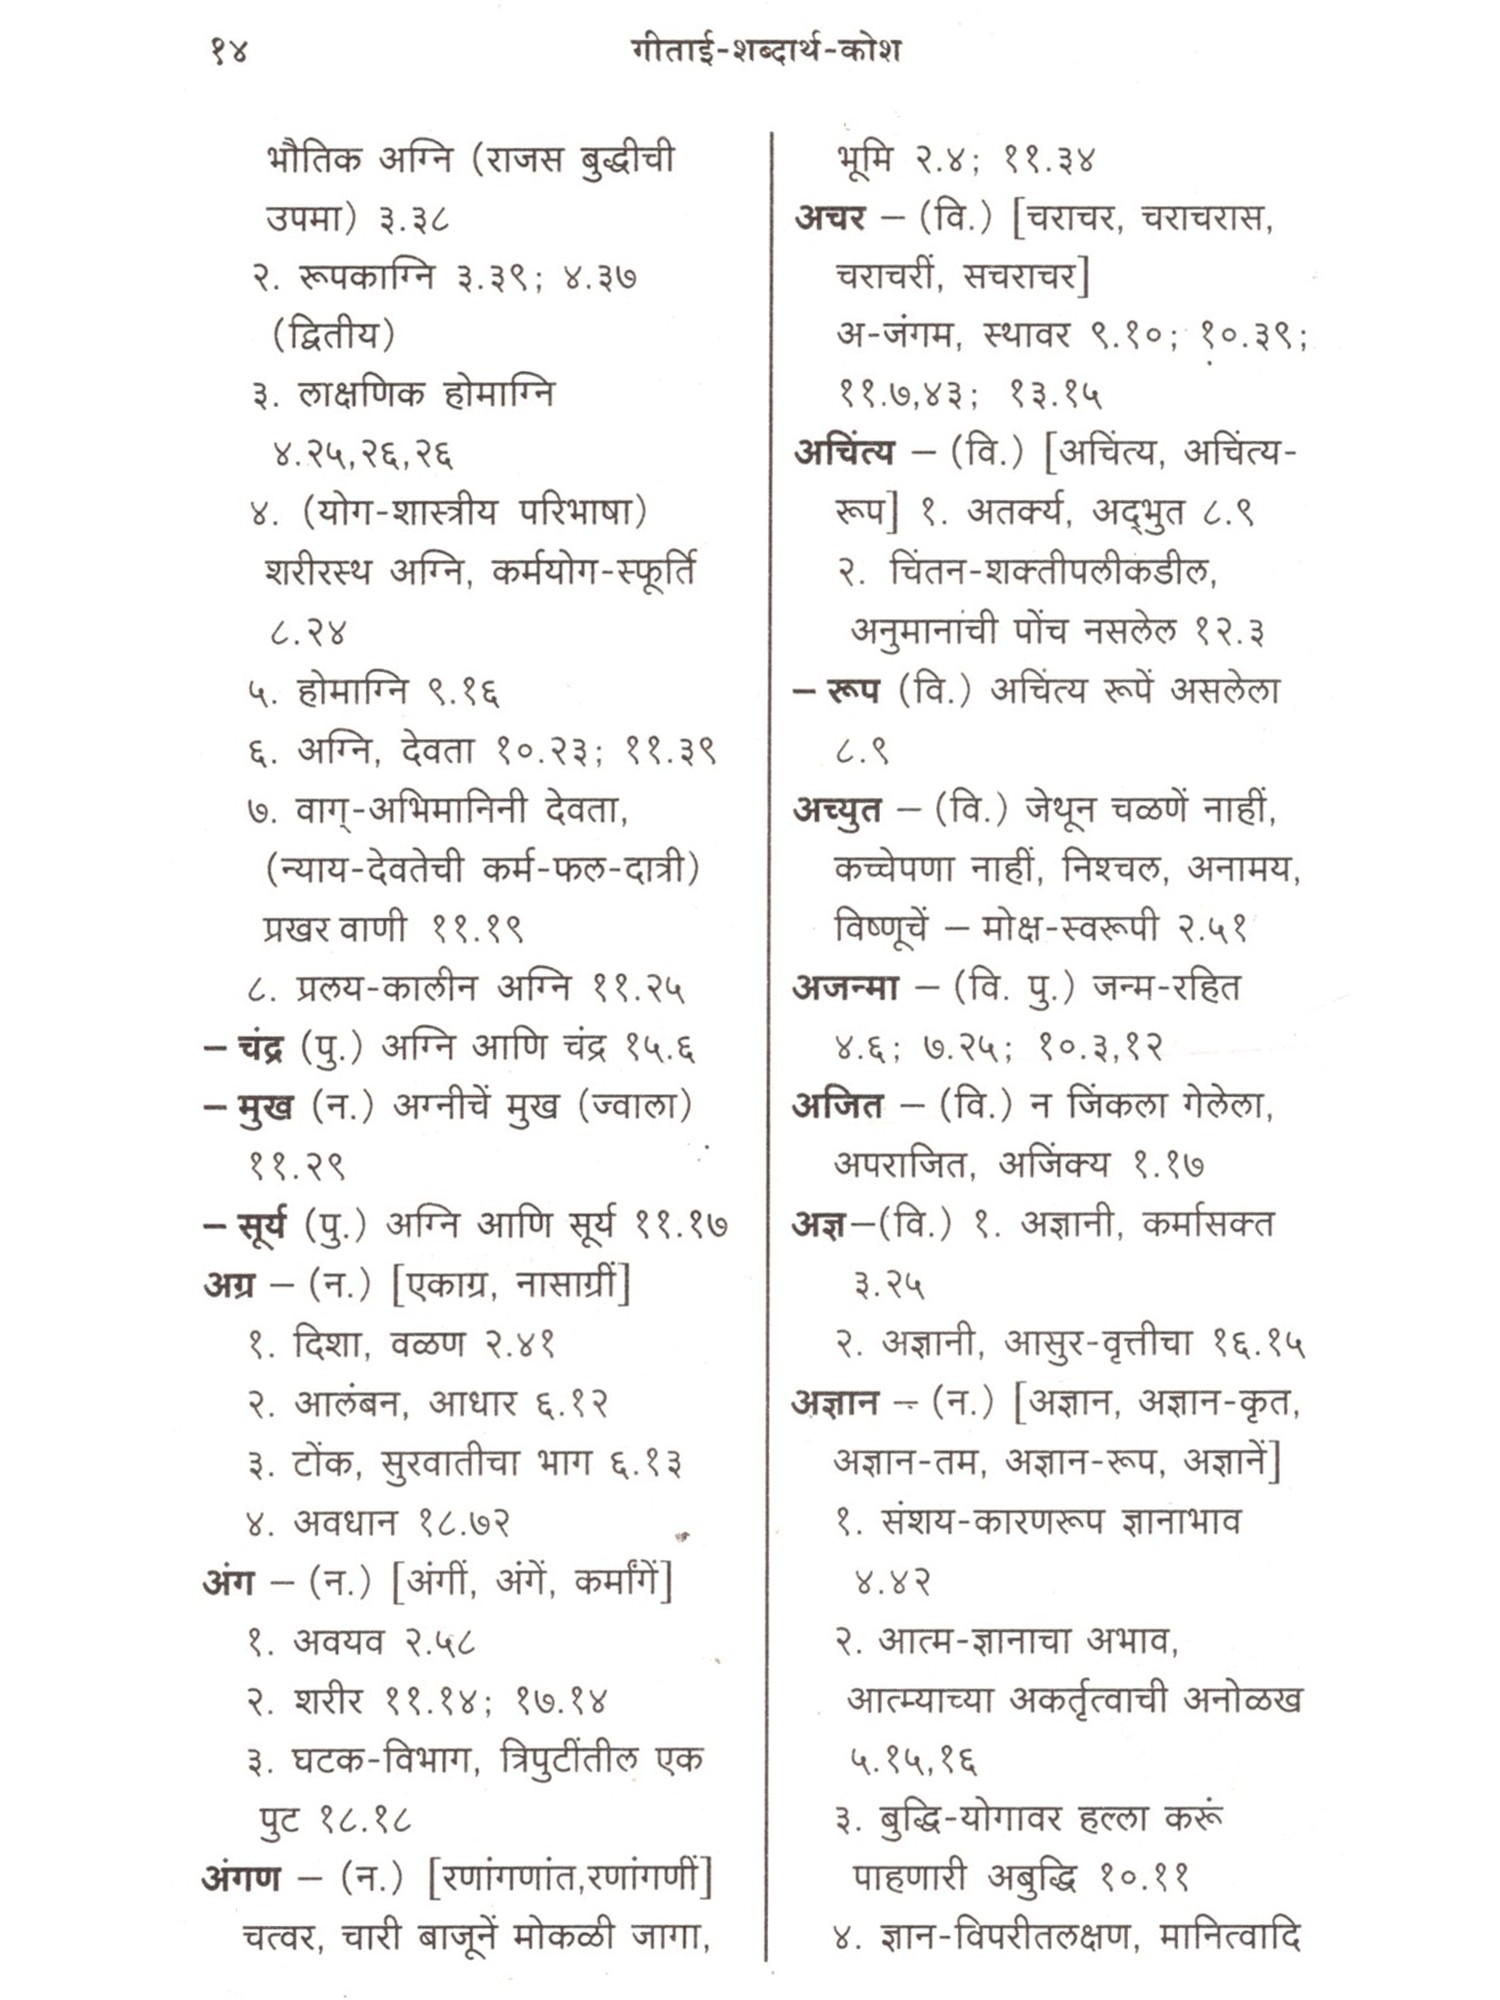 १४
गीताई-शब्दार्थ-कोश
भौतिक अग्नि (राजस बुद्धीची
उपमा) ३.३८
२. रूपकाग्नि ३.३९; ४.३७
(द्वितीय)
३. लाक्षणिक होमाग्नि
४.२५,२६,२६
४. (योग-शास्त्रीय परिभाषा)
शरीरस्थ अग्नि, कर्मयोग-स्फूर्ति
८.२४
५. होमाग्नि ९.१६
६. अग्नि, देवता १०.२३; ११.३९
७. वाग्-अभिमानिनी देवता,
(न्याय-देवतेची कर्म-फल-दात्री)
प्रखर वाणी ११.१९
८. प्रलय-कालीन अग्नि ११.२५
– चंद्र (पु.) अग्नि आणि चंद्र १५.६
– मुख (न.) अग्नीचें मुख (ज्वाला)
११.२९
– सूर्य (पु.) अग्नि आणि सूर्य ११.१७
अग्र – (न.) [एकाग्र, नासाग्रीं]
१. दिशा, वळण २.४१
२. आलंबन, आधार ६.१२
३. टोंक, सुरवातीचा भाग ६.१३
४. अवधान १८.७२
अंग – (न.) [अंगीं, अंगें, कर्मांगें]
१. अवयव २.५८
२. शरीर ११.१४; १७.१४
३. घटक-विभाग, त्रिपुटींतील एक
पुट १८.१८
अंगण – (न.) [रणांगणांत,रणांगणीं]
चत्वर, चारी बाजूनें मोकळी जागा,
भूमि २.४; ११.३४
अचर – (वि.) [चराचर, चराचरास,
चराचरीं, सचराचर]
अ-जंगम, स्थावर ९.१०; १०.३९;
११.७,४३; १३.१५
अचिंत्य – (वि.) [अचिंत्य, अचिंत्य-
रूप] १. अतर्क्य, अद्‌भुत ८.९
२. चिंतन-शक्तीपलीकडील,
अनुमानांची पोंच नसलेल १२.३
– रूप (वि.) अचिंत्य रूपें असलेला
८.९
अच्युत – (वि.) जेथून चळणें नाहीं,
कच्चेपणा नाहीं, निश्चल, अनामय,
विष्णूचें – मोक्ष-स्वरूपी २.५१
अजन्मा – (वि. पु.) जन्म-रहित
४.६; ७.२५; १०.३,१२
अजित – (वि.) न जिंकला गेलेला,
अपराजित, अजिंक्य १.१७
अज्ञ–(वि.) १. अज्ञानी, कर्मासक्त
३.२५
२. अज्ञानी, आसुर-वृत्तीचा १६.१५
अज्ञान – (न.) [अज्ञान, अज्ञान-कृत,
अज्ञान-तम, अज्ञान-रूप, अज्ञानें]
१. संशय-कारणरूप ज्ञानाभाव
४.४२
२. आत्म-ज्ञानाचा अभाव,
आत्म्याच्या अकर्तृत्वाची अनोळख
५.१५,१६
३. बुद्धि-योगावर हल्ला करूं
पाहणारी अबुद्धि १०.११
४. ज्ञान-विपरीतलक्षण, मानित्वादि